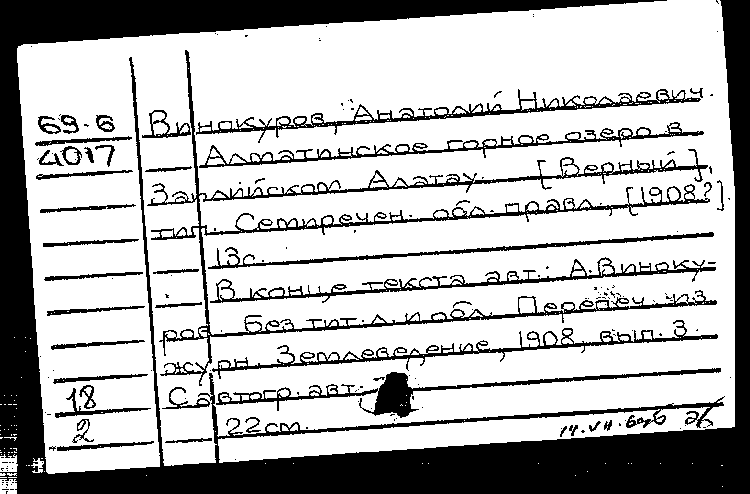 69-6 Винокуров, Анатолий Николаевич.
4017 Алматинское горное озеро в
Заилийском Алатау. [Верный],
тип. Семиречен. обл. правл., [1908?].
13с.
В конце текста авт.: А.Виноку-
ров. Без тит. л. и обл. Перепеч. из
журн. Землеведение, 1908, вып. 3.
18 С автогр. авт.
2 22 см.
14.VII.